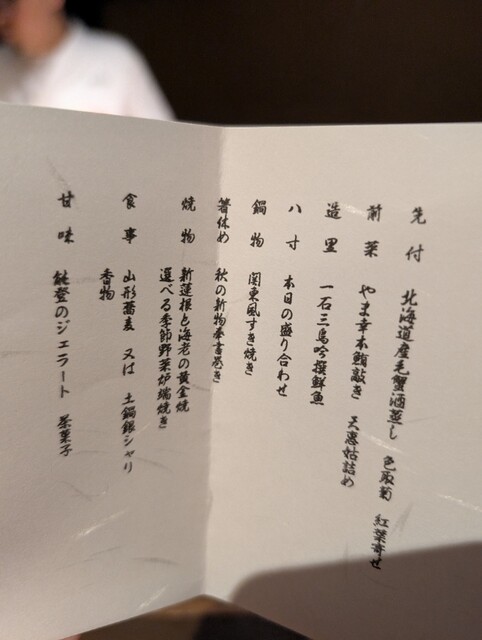 先付 北海道産毛蟹酒蒸し 色取菊 紅葉寄せ
前菜 やま幸本鮪敲き 天恵菇詰め
造里 一石三鳥吟撰鮮魚
八寸 本日の盛り合わせ
鍋物 関東風すき焼き
箸休め 秋の新物奉書巻き
焼物 新蓮根と海老の黄金焼
選べる季節野菜炉端焼き
食事 山形蕎麦 又は 土鍋銀シャリ
香物
甘味 能登のジェラート 茶菓子